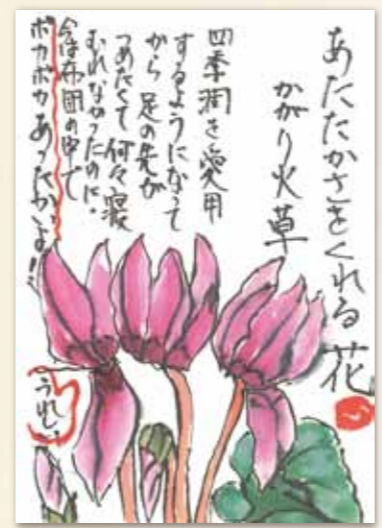 あたたかさをくれる花
かがり火草
四季潤を愛用
するようになって
から 足の先が
つめたくて 何々寝
むれなかったのに、
今は布団の中で
ポカポカあったかいよ!!
うれしい